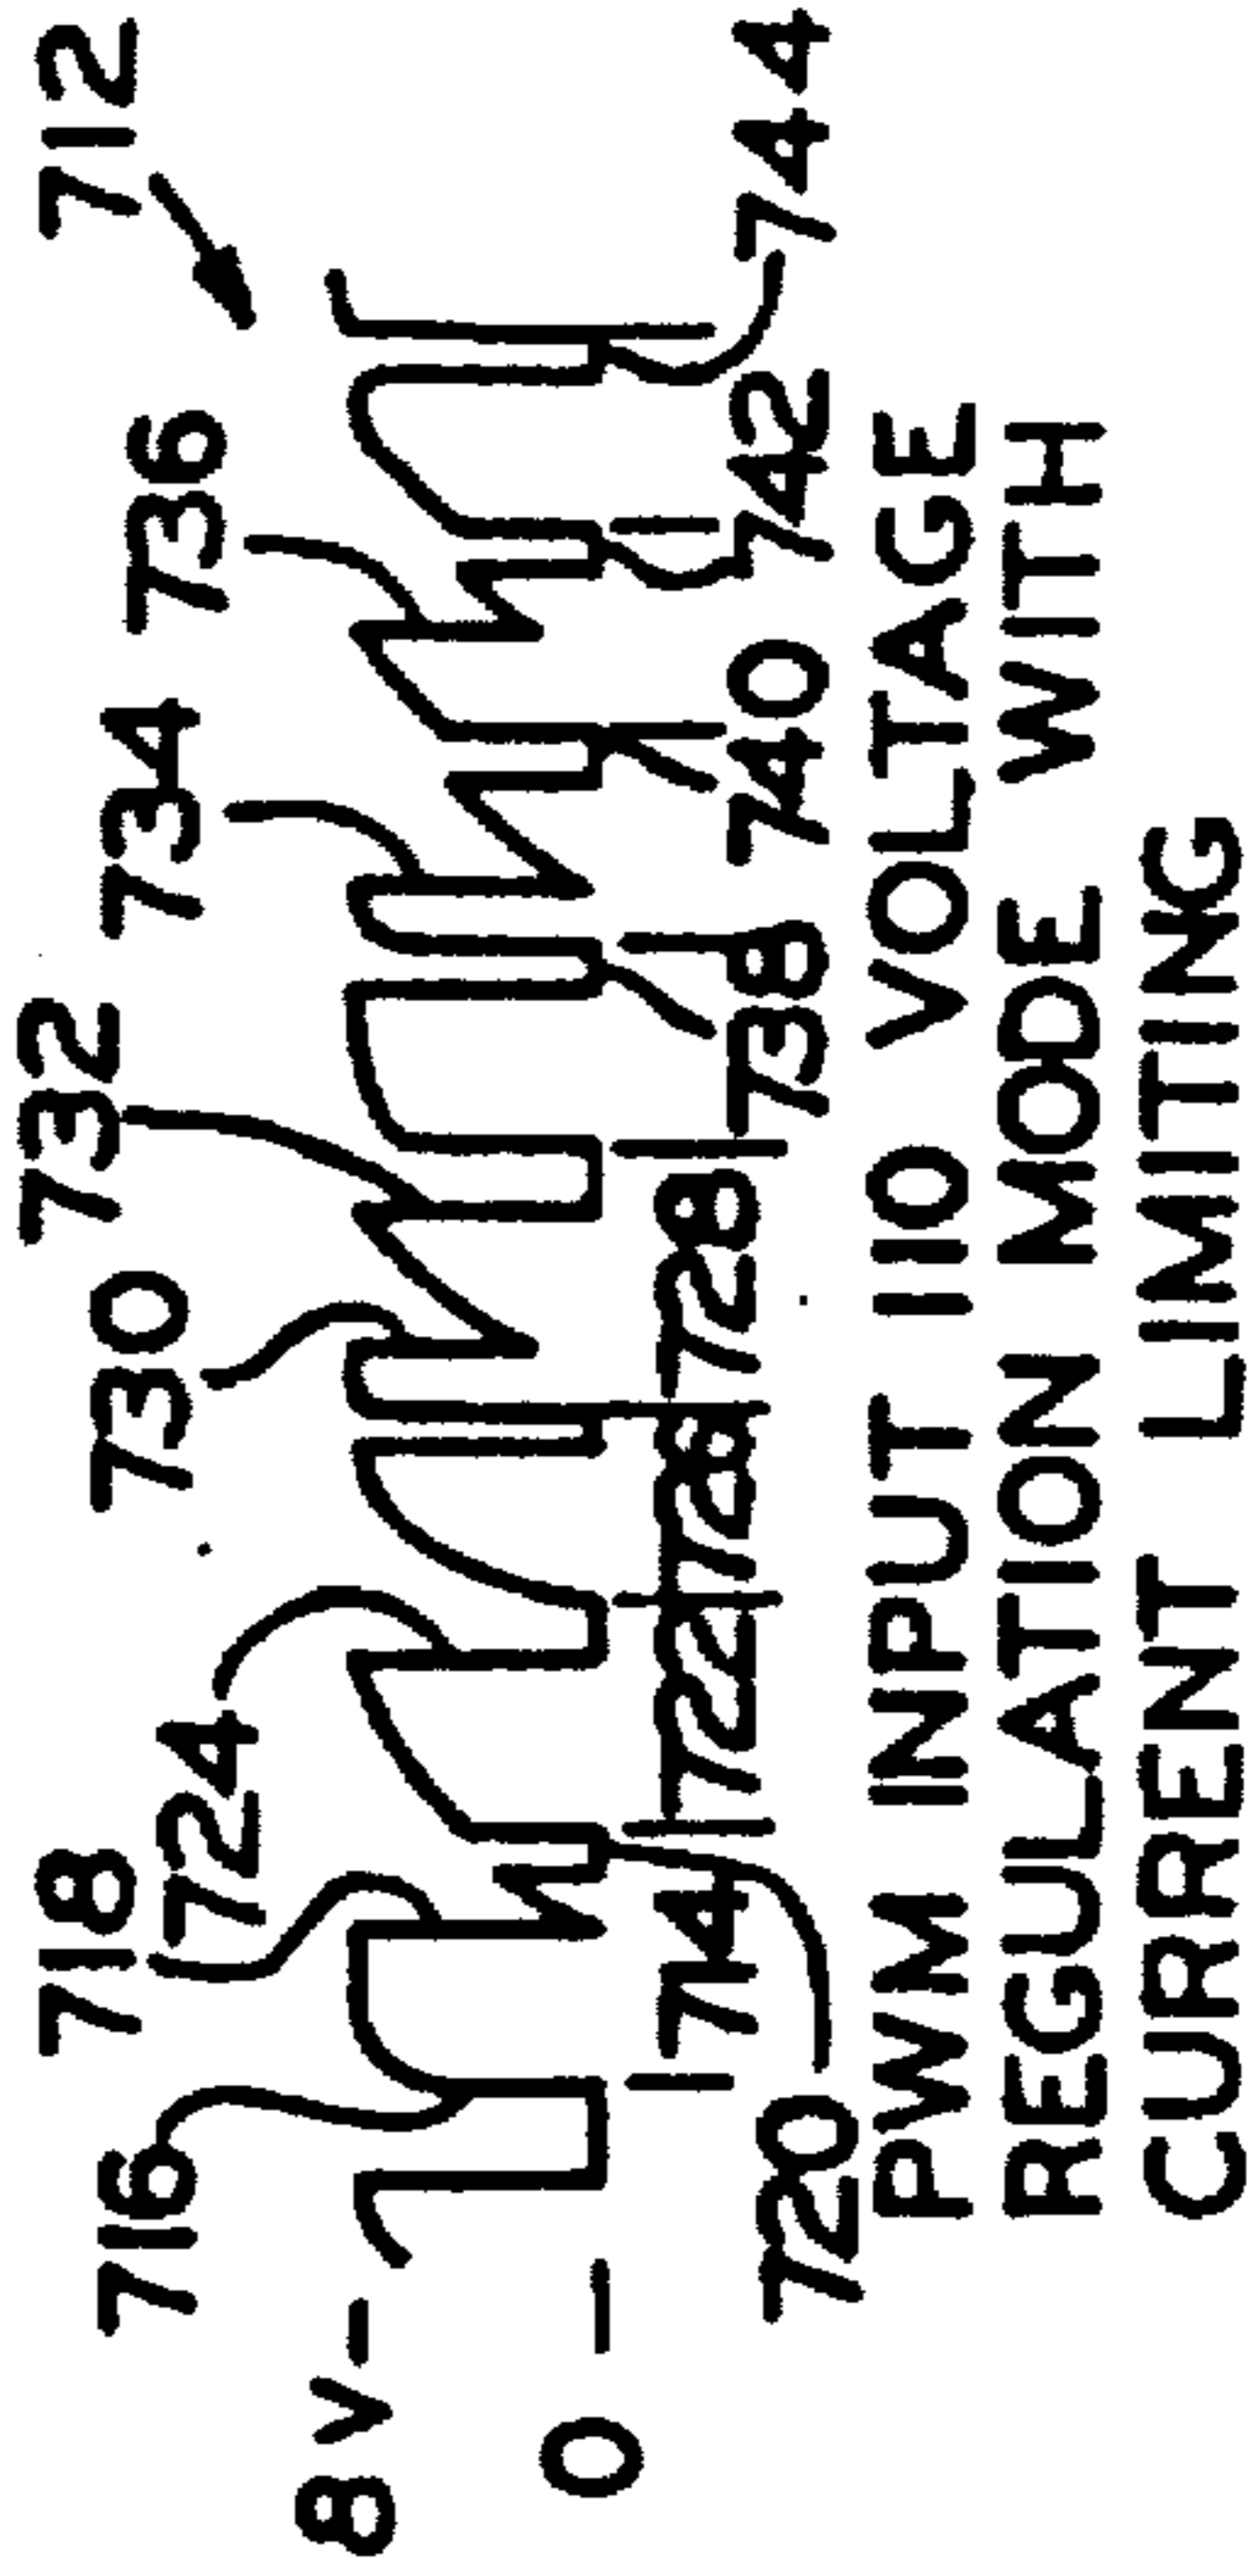 712
732
718
730
734
736
716
724
8V
0
714
722
726
728
738
740
742
744
720
PWM INPUT 110 VOLTAGE
REGULATION MODE WITH
CURRENT LIMITING